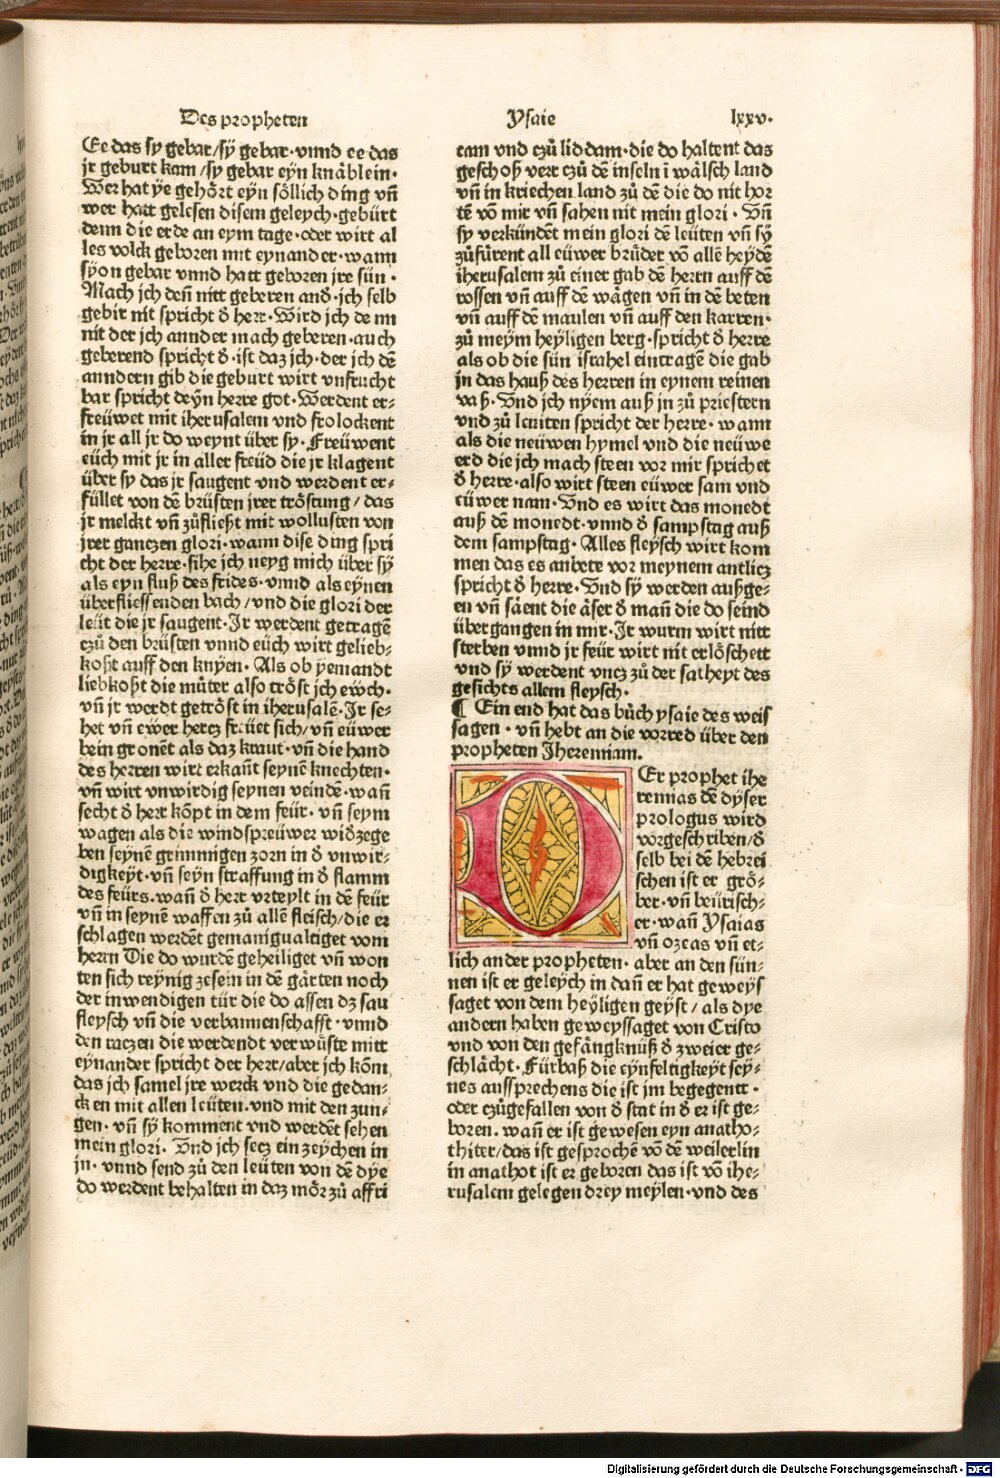 Des propheten
Ysaie
lxxv.
Ee das sy gebar/sÿ gebar·vnnd ee das
jr geburt kam/sy gebar eyn knåblein·
Wer hat ÿe gehört eyn söllich ding vñ
wer hatt gelesen disem geleych·gebürt
denn die erde an eym tage·oder wirt al
les volck geboren mit eynander·wann
sÿon gebar vnnd hatt geboren jre sün·
Mach ich deñ nitt geberen and᷑·ich selb
gebir nit spricht d᷑ herr·Wird ich denn
nit der ich annder mach geberen·auch
geberend spricht d᷑·ist daz ich·der ich dē
anndern gib die geburt wirt vnfrucht
bar spricht deÿn herre got·Werdent er⸗
freüwet mit iherusalem vnd frolockent
in jr all jr do weynt über sy·Freüwent
eüch mit jr in aller freüd die jr klagent
über sy das jr saugent vnd werdent er⸗
füllet von dē brüsten jrer tröstung/das
jr melckt vñ zůfließt mit wollusten von
jrer ganczen glori·wann dise ding spri
cht der herre·sihe ich neyg mich über sÿ
als eyn fluß des frides·vnnd als eÿnen
überfliessenden bach/vnd die glori der
leüt die jr saugent·Jr werdent getragē
czů den brüsten vnnd eüch wirt gelieb⸗
koßt auff den knÿen·Als ob ÿemandt
liebkoßt die můter also tröst ich ewch·
vñ jr werdt getröst in iherusalē·Jr se⸗
het vñ ewer hercz freüet sich/vñ eüwer
bein gronēt als daz kraut·vñ die hand
des herren wirt erkañt seynē knechten·
vñ wirt vnwirdig seynen veindē·wañ
secht d᷑ herr kōpt in dem feür·vñ seym
wagen als die windspreüwer wid᷑zege
ben seynē grimmigen zorn in d᷑ vnwir⸗
digkeyt·vñ seyn straffung in d᷑ flamm
des feürs.wañ d᷑ herr vrteylt in dē feür
vñ in seynē waffen zů allē fleisch/die er
schlagen werdēt gemanigualtiget vom
herrn Die do wurdē geheiliget vñ won
ten sich reynig zesein in dē gärten noch
der inwendigen tür die do assen dz sau
fleysch vñ die verbannenschafft·vnnd
den raczen die werdendt verwüste mitt
eynander spricht der herr/aber ich kōm
das ich samel jre werck vnd die gedan⸗
cken mit allen leüten.vnd mit den zun⸗
gen·vñ sÿ komment vnd werdēt sehen
mein glori·Vnd ich secz ein zeÿchen in
jn·vnnd send zů den leüten von dē dye
do werdent behalten in daz mör zů affri
cam vnd czů liddam·die do haltent das
geschoß verr czů dē inseln ī wälsch land
vñ in kriechen land zů dē die do nit hor
tē vō mir vñ sahen nit mein glori·Vñ
sy verkündēt mein glori dē leüten vñ sÿ
zůfürent all eüwer brüder vō allē heÿdē
iherusalem zů einer gab dē herrn auff dē
rossen vñ auff dē wägen vñ in dē beten
vñ auff dē maulen vñ auff den karren·
zů meÿm heÿligen berg·spricht d᷑ herre
als ob die sün israhel eintragē die gab
jn das hauß des herren in eynem reinen
vaß·Vnd ich nÿem auß jn zů priestern
vnd zů leuiten spricht der herre·wann
als die neüwen hymel vnd die neüwe
erd die ich mach steen vor mir sprichet
d᷑ herre·also wirt steen eüwer sam vnd
eüwer nam·Vnd es wirt das monedt
auß dē monedt·vnnd d᷑ sampstag auß
dem sampstag·Alles fleysch wirt kom
men das es anbete vor meynem antlicz
spricht d᷑ herre·Vnd sÿ werden außge⸗
en vñ säent die äser d᷑ mañ die do seind
übergangen in mir·Jr wurm wirt nitt
sterben vnnd jr feür wirt nit erlöschett
vnd sÿ werdent vncz zů der satheyt des
gesichts allem fleysch·
¶ Ein end hat das bůch ysaie des weis
sagen·vñ hebt an die vorred über den
propheten Jheremiam.
DEr prophet ihe
remias dē dÿser
prologus wird
vorgeschriben/d᷑
selb bei dē hebrei
schen ist er grö⸗
ber·vñ beürisch⸗
er·wañ Ysaias
vñ ozeas vñ et⸗
lich ander propheten·aber an den sün⸗
nen ist er geleych in dañ er hat geweys
saget von dem heÿligen geÿst/als dye
andern haben geweyssaget von Cristo
vnd von den gefängknüß d᷑ zweier ge⸗
schlächt·Fürbaß die eynfeltigkeyt seÿ⸗
nes aussprechens die ist jm begegent·
oder czůgefallen von d᷑ stat in d᷑ er ist ge⸗
boren.wañ er ist gewesen eyn anatho⸗
thiter/das ist gesprochē vō dē weilerlin
in anathot ist er geboren das ist vō ihe⸗
rusalem gelegen drey meÿlen·vnd des
Digitalisierung gefördert durch die Deutsche Forschungsgemeinschaft - DFG